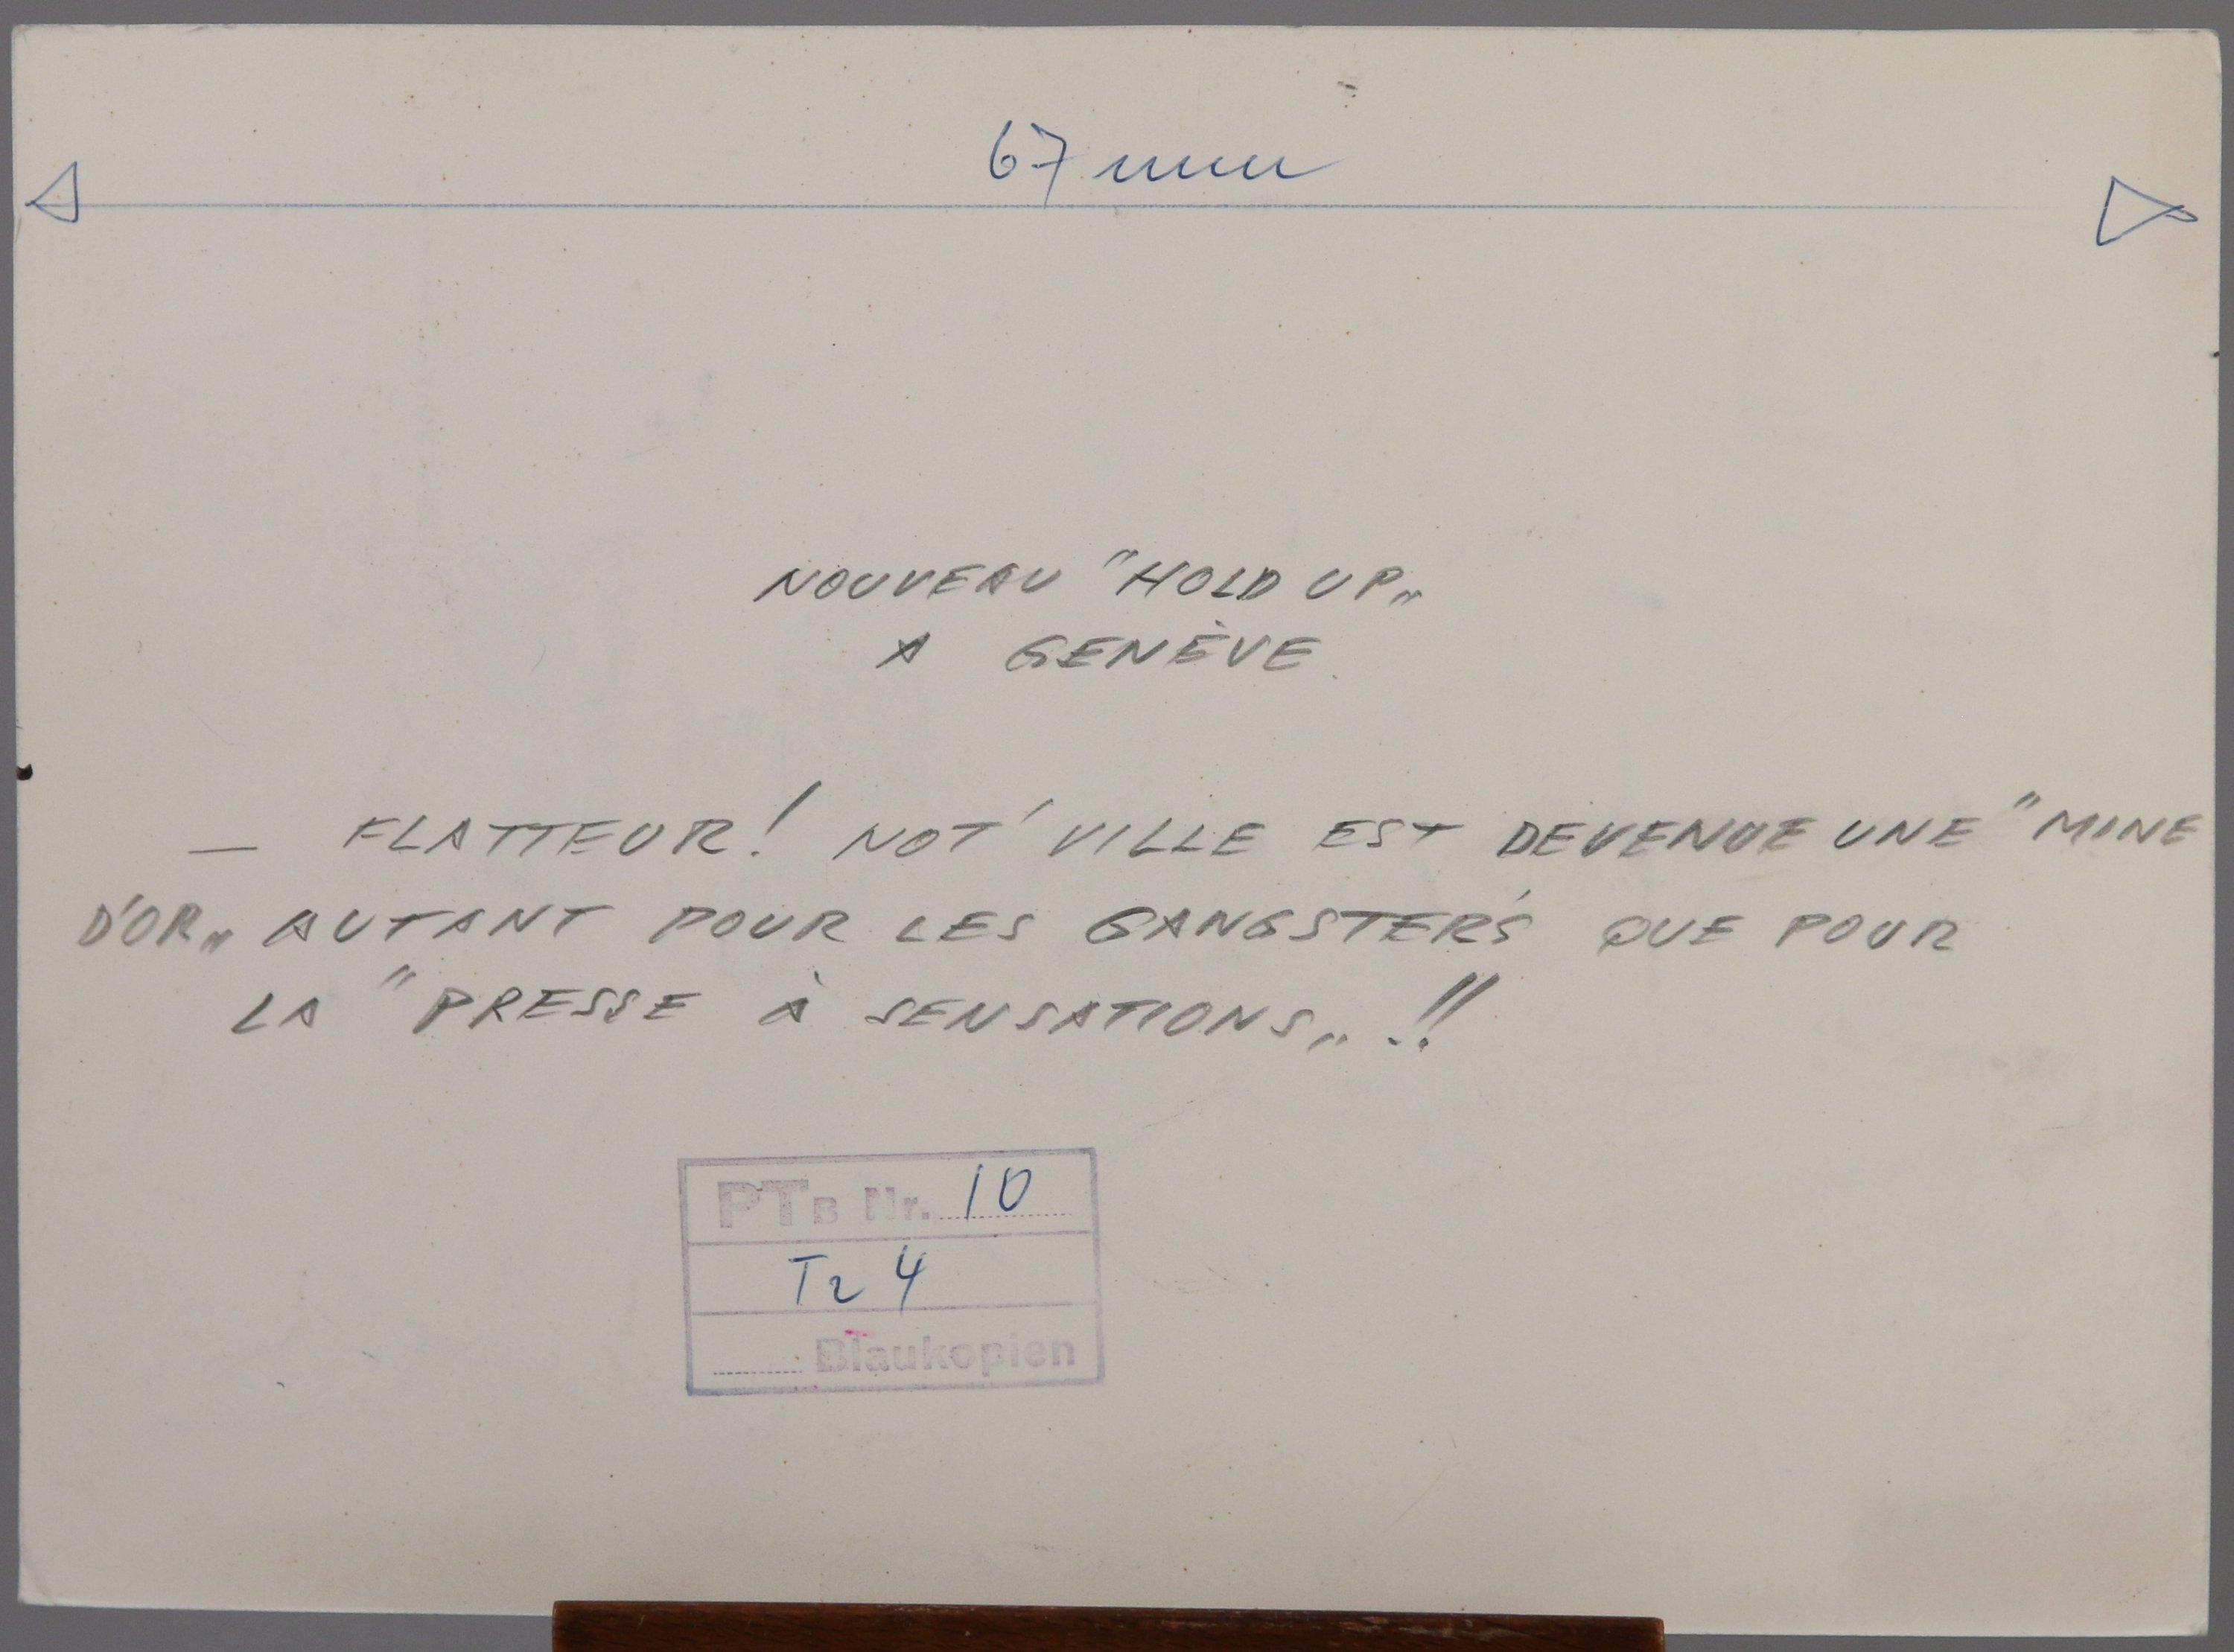 67 mm
NOUVEAU "HOLD UP„
A GENÈVE
— FLATTEUR! NOT' VILLE EST DEVENUE UNE "MINE
D'OR„ AUTANT POUR LES GANGSTER'S QUE POUR
LA "PRESSE À SENSATIONS„ !!
PTB Nr. 10
Tr 4
Blaukopien